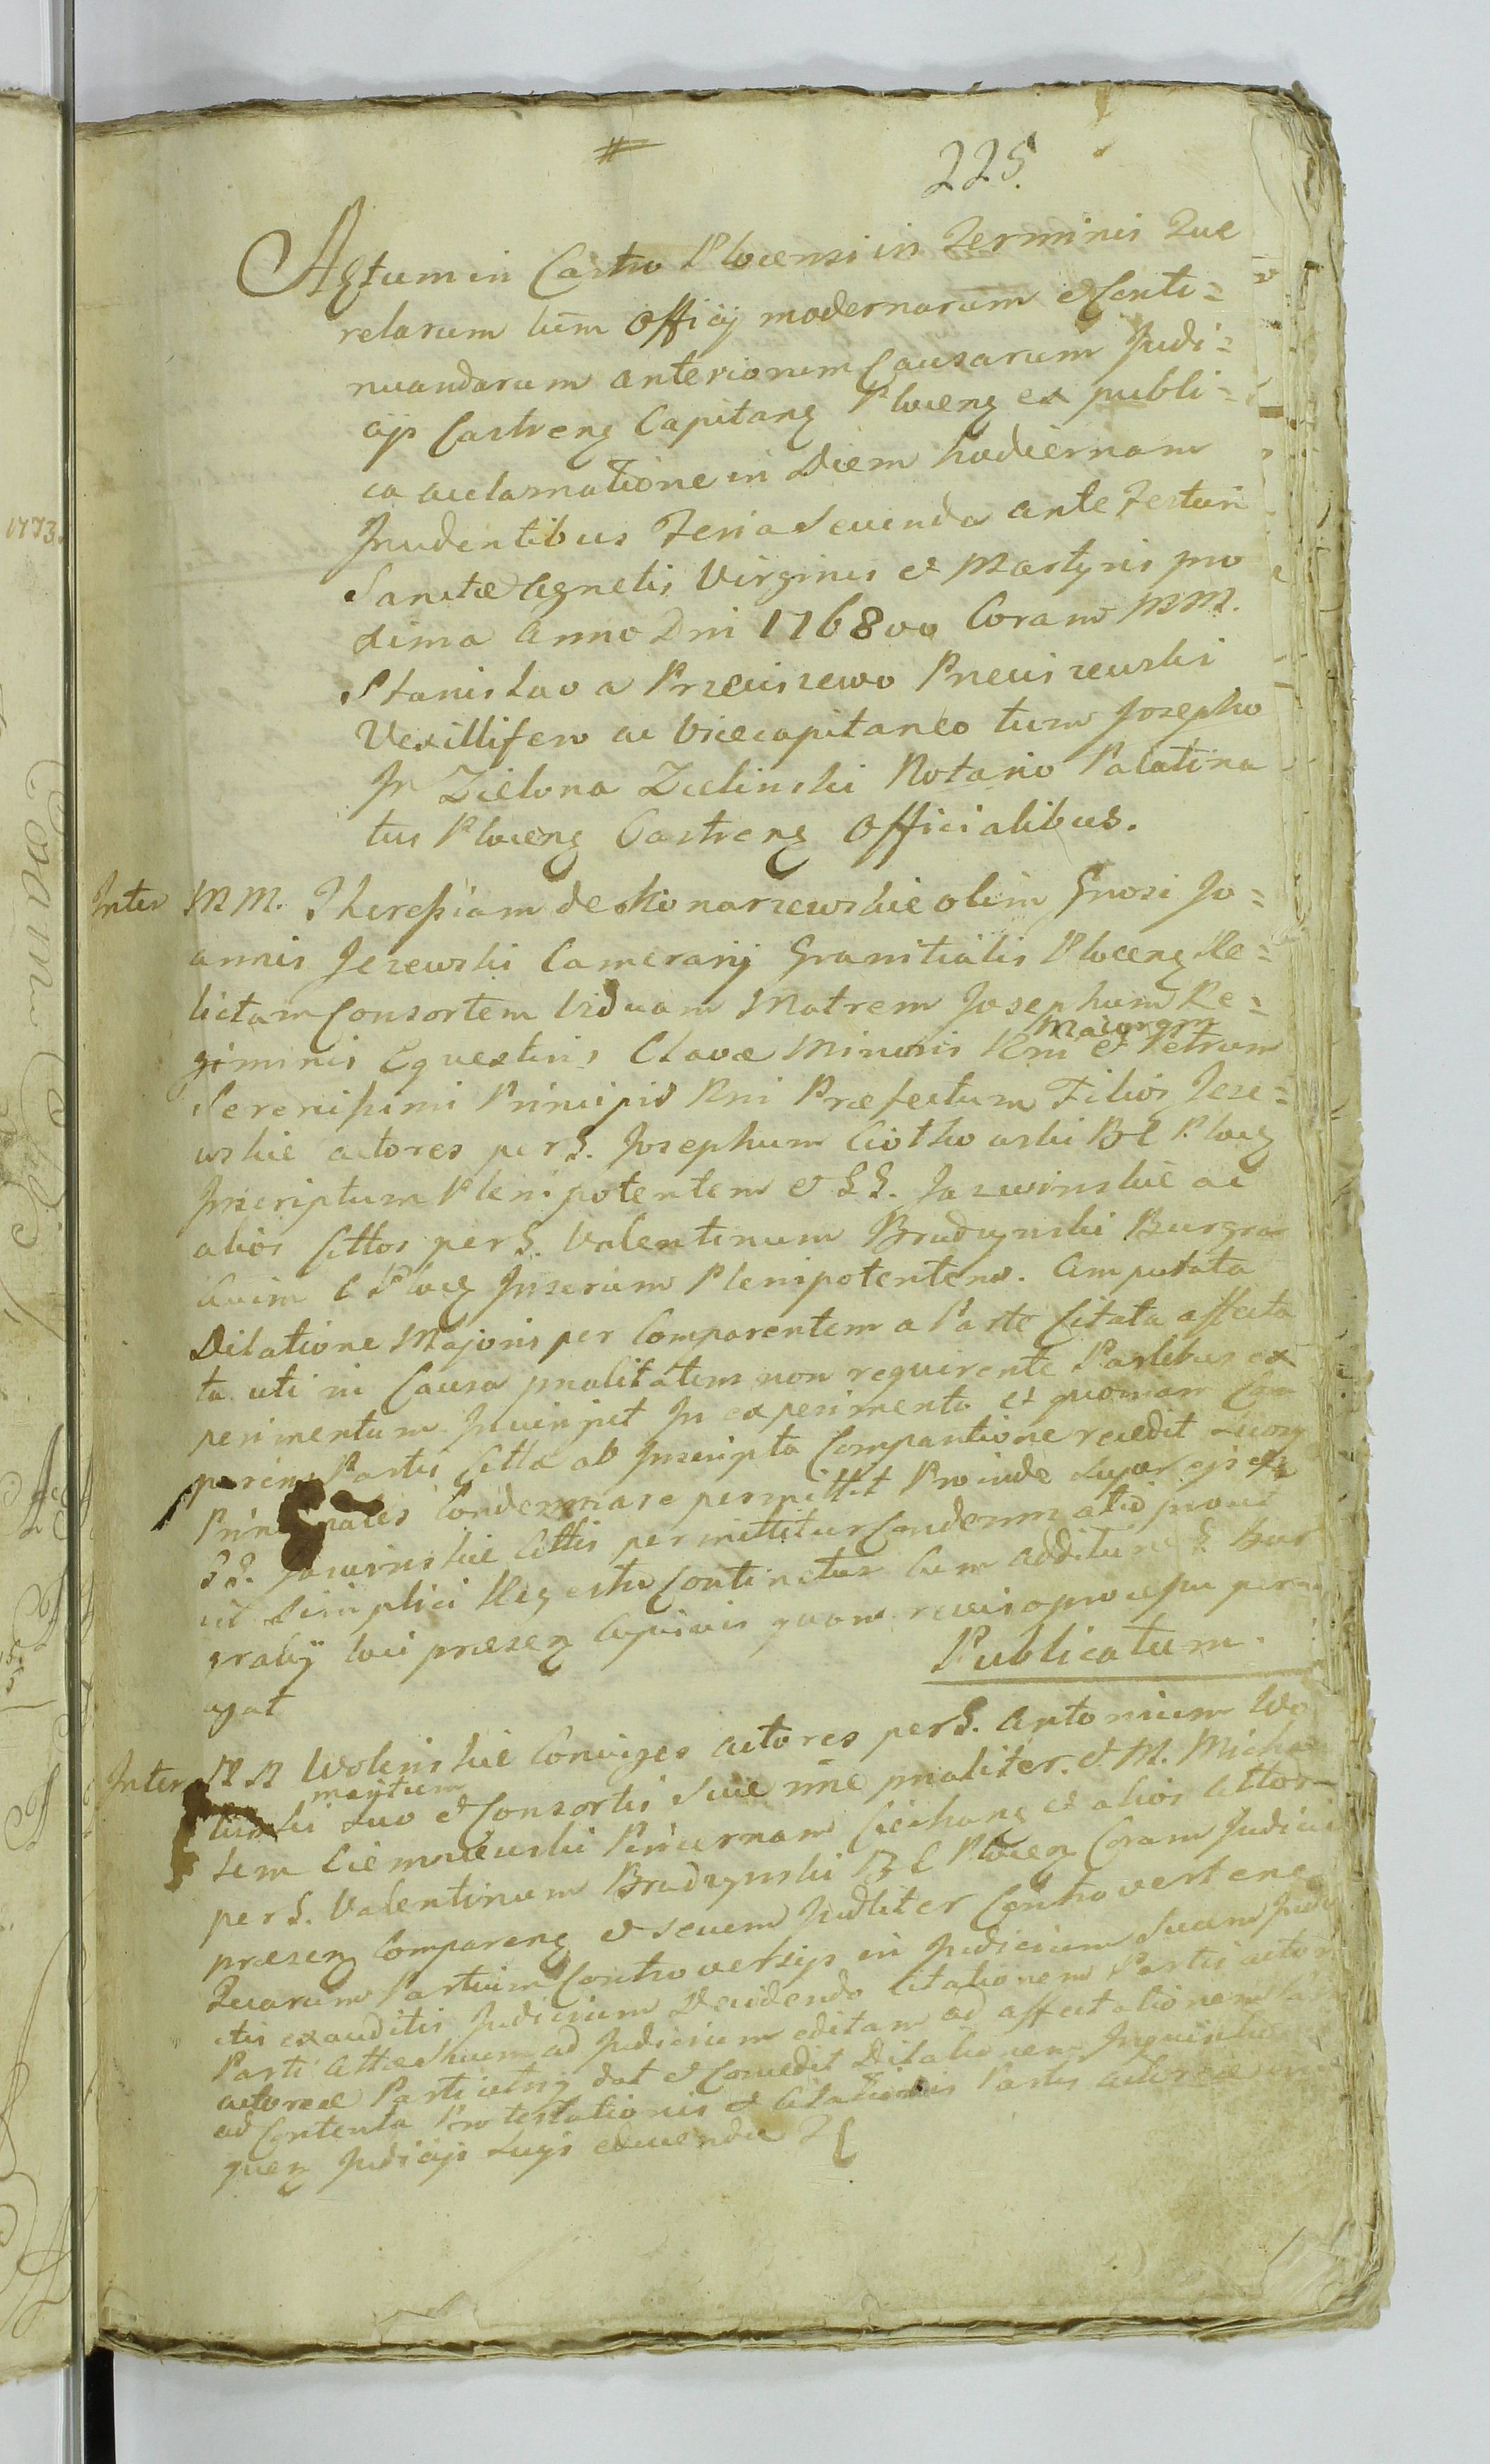 #
225.
Actum in Castro Plocensi in Terminis Que
relarum tum Officij modernarum et Conti=
nuandarum anteriorum Causarum Judi=
cijs Castreng Capitang Ploceng ex publi=
ca acclamatione in Diem hodiernam
Incidentibus Feria Secunda ante Festum
Sanctæ Agnetis Virginis et Martyris pro
xima Anno Dni 1768vo Coram MM.
Stanislao a Przeciszewo Przeciszewski
Vexillifero ac Vicecapitaneo tum Josepho
In Zielona Zielinski Notario Palatina
tus Ploceng Castreng Officialibus.
Inter MM. Theresiam de Konarzewskie olim Gnosi Jo=
annis Jezewski Camerarij Granitialis Ploceng Re=
lictam Consortem Viduam Matrem Josephum Re=
giminis Equestris Clavæ Minoris Rni Maiorem et Petrum
Serenissimi Principis Rni Præfectum Filios Jeze=
wskie actores per S. Josephum Ciotkowski BC Plocg
Inscriptum Plenipotentem et SS. Jazwinskie ac
alios Cttos per S. Valentinum Brudzynski Burgra
bium C Plocg Inscrium Plenipotentem. Amputata
Dilatione Majoris per Comparentem a Parte Citata affecta
ta uti in Causa pnalitatem non requirente Partibus ex
perimentum Injunxit In experimento et quoniam Com
pareng Partis Cttæ ab Inscripta Comparitione recedit Suosq
Principales Condemnare permittit Proinde Super ejs
SS. Jazwinskie Cttis permittitur Condemnatio prout
in Simplici Regestro Continetur Cum additione S. Bur
grabij loci præseng
agat
Publicatum.
Inter MM Wolinskie Conjuges actores per S. Antonium Wo
linski maritum Suo et Consortis Suæ nne pnaliter. et M. Micha
elem Ciemniewski Pincernam Ciechang et alios Cttos
per S. Valentinum Brudzynski BC Ploceng Coram Judicio
præseng Compareng et secum Judliter Controverteng
Quarum Partium Controversijs in Judicium Suum Judi
ctis exauditis Judicium Decidendo Citationem Partis actor
Parti Cttæ Suum ad Judicium editam ad affectationem Par
actoreæ Parti utriq dat et Concedit Dilationem Inquisitio
ad Contenta Protestationis et Citationis Partis actoreæ
queng Judicijs Sugs educenda